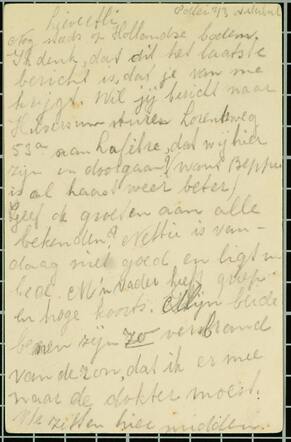 Lievelli
Nog steeds op Hollandse bodem.
Ik denk, dat dit het laatste
bericht is, dat je van me
krijgt. Wil jij bericht naar
Hilversum sturen Lorentzweg
53a aan, dat wij hier
zijn en doorgaan? (want Beppie
is al haast weer beter)
Geef de groeten aan alle
bekenden? Nettie is van-
daag niet goed en ligt in
bed. M'n vader heeft griep
en hoge koorts. Mijn beide
benen zijn zo verbrand
van de zon, dat ik er mee
naar de dokter moest.
We zitten hier midden